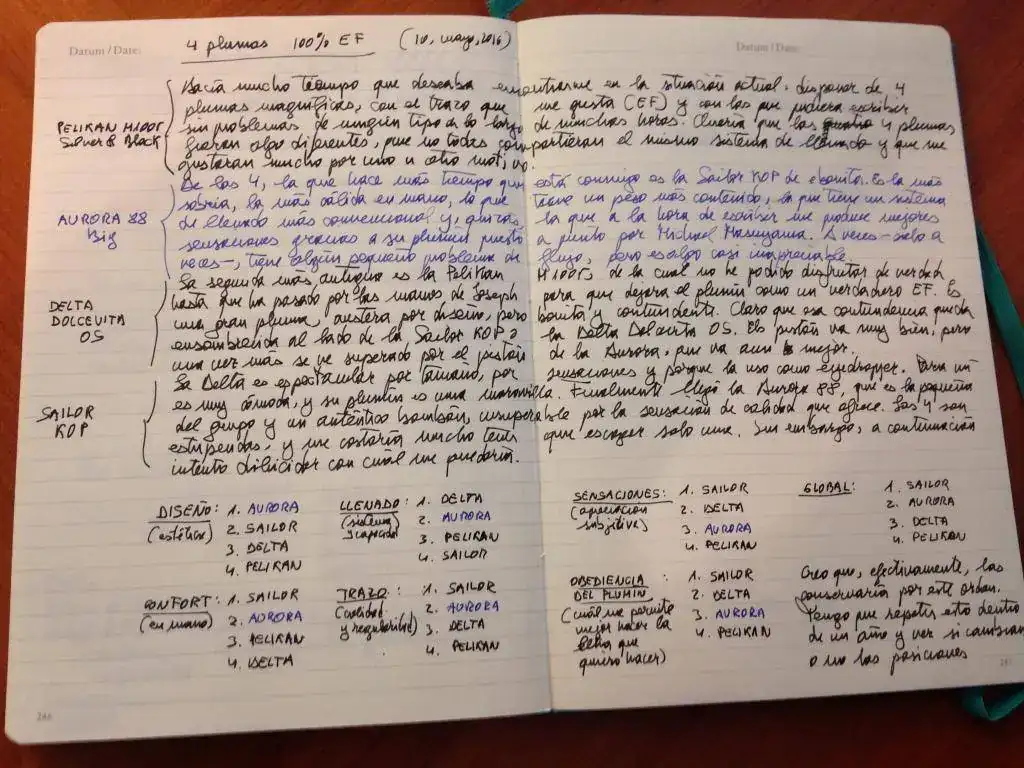 Datum / Date:
Datum / Date:
4 plumas 100% EF (10, mayo, 2016)
PELIKAN M1005
Silver & Black
AURORA 88
Big
DELTA
DOLCEVITA
OS
SAILOR
KOP
Hacía mucho tiempo que deseaba encontrarme en la situación actual: disponer de 4
plumas magníficas, con el trazo que me gusta (EF) y con las que pudiera escribir
sin problemas de ningún tipo a lo largo de muchas horas. Quería que las 4 plumas
fueran algo diferentes, que no todas compartieran el mismo sistema de llenado y que me
gustaran mucho por uno u otro motivo.
De las 4, la que hace más tiempo que está conmigo es la Sailor KOP de ebonita. Es la más
sobria, la más cálida en mano, la que tiene un peso más contenido, la que tiene un sistema
de llenado más convencional y, quizás, la que a la hora de escribir me produce mejores
sensaciones gracias a su plumín puesto a punto por Michael Masuyama. A veces - solo a
veces -, tiene algún pequeño problema de flujo, pero es algo casi inapreciable.
La segunda más antigua es la Pelikan M1005, de la cual no he podido disfrutar de verdad
hasta que ha pasado por las manos de Joseph para que dejara el plumín como un verdadero EF. Es
una gran pluma, austera por diseño, pero bonita y contundente. Claro que esa contundencia queda
ensombrecida al lado de la Sailor KOP o la Delta Dolcevita OS. El pistón va muy bien, pero
una vez más se ve superado por el pistón de la Aurora, que va aun mejor.
La Delta es espectacular por tamaño, por sensaciones y porque la uso como eyedropper. Para mí
es muy cómoda, y su plumín es una maravilla. Finalmente llegó la Aurora 88, que es la pequeña
del grupo y un auténtico bombón, insuperable por la sensación de calidad que ofrece. Las 4 son
estupendas, y me costaría mucho tener que escoger solo una. Sin embargo, a continuación
intento dilucidar con cuál me quedaría.
DISEÑO: 1. AURORA
(estético) 2. SAILOR
3. DELTA
4. PELIKAN
LLENADO: 1. DELTA
(sistema 2. AURORA
y capacidad) 3. PELIKAN
4. SAILOR
CONFORT: 1. SAILOR
(en mano) 2. AURORA
3. PELIKAN
4. DELTA
TRAZO: 1. SAILOR
(calidad 2. AURORA
y regularidad) 3. DELTA
4. PELIKAN
SENSACIONES: 1. SAILOR
(apreciación 2. DELTA
subjetiva) 3. AURORA
4. PELIKAN
GLOBAL: 1. SAILOR
2. AURORA
3. DELTA
4. PELIKAN
OBEDIENCIA 1. SAILOR
DEL PLUMIN 2. DELTA
(cuál me permite 3. AURORA
mejor hacer la 4. PELIKAN
letra que
quiero hacer)
Creo que, efectivamente, las
conservaría por este orden.
Tengo que repetir esto dentro
de un año y ver si cambian
o no las posiciones
246
247